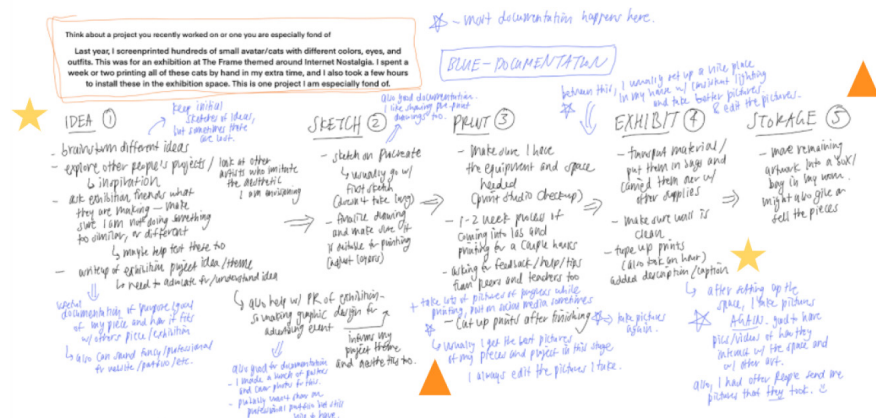 Think about a project you recently worked on or one you are especially fond of
Last year, I screenprinted hundreds of small avatar/cats with different colors, eyes, and
outfits. This was for an exhibition at The Frame themed around Internet Nostalgia. I spent a
week or two printing all of these cats by hand in my extra time, and I also took a few hours
to install these in the exhibition space. This is one project I am especially fond of.
- most documentation happens here.
BLUE - DOCUMENTATION
between this, I usually set up a nice place
in my house w/ consistent lighting
and take better pictures.
& edit the pictures.
IDEA 1
keep initial
sketches of ideas,
but sometimes these
are lost.
- brainstorm different ideas
- explore other people's projects / look at other
artists who imitate
the aesthetic
I am envisioning
↳ inspiration
- ask exhibition friends what
they are making - make
sure I am not doing something
too similar, or different
↳ maybe help test these too
- writeup of exhibition project idea/theme
↳ need to advocate for/understand idea
useful
documentation of purpose/goal
of my piece and how it fits
w/ others piece/exhibition
↳ also can sound fancy/professional
for website/portfolio/etc.
SKETCH 2
also good documentation
like sharing pre-print
drawings too.
- sketch on procreate
↳ usually go w/
first sketch
(doesn't take long)
- finalize drawing
and make sure it
is suitable for printing
(adjust layers)
↳ also help w/ PR of exhibition -
so making graphic design for
advertising event
informs my
project theme
and aesthetic too.
also good for documentation
- I made a bunch of posters
and cover photos for this.
- probably won't show on
professional portfolio but still
nice to have.
PRINT 3
- make sure I have
the equipment and space
needed
(print studio checkup)
- 1-2 week process of
coming into lab and
printing for a couple hours
- asking for feedback/help/tips
from peers and teachers too
+ take lots of pictures of progress while
printing, put on social media sometimes
- Cut up prints after finishing
take pictures
again.
↳ usually I get the best pictures
of my pieces and project in this stage
I always edit the pictures I take.
EXHIBIT 4
- transport material /
put them in bags and
carried them over w/
other supplies
- make sure wall is
clean.
- tape up prints
(also took an hour)
added description/caption
↳ after setting up the
space, I take pictures
AGAIN. good to have
pics/videos of how they
interact w/ the space and
w/ other art.
also, I had other people send me
pictures that they took.
STORAGE 5
- move remaining
artwork into a box/
bag in my room.
might also give or
sell the pieces